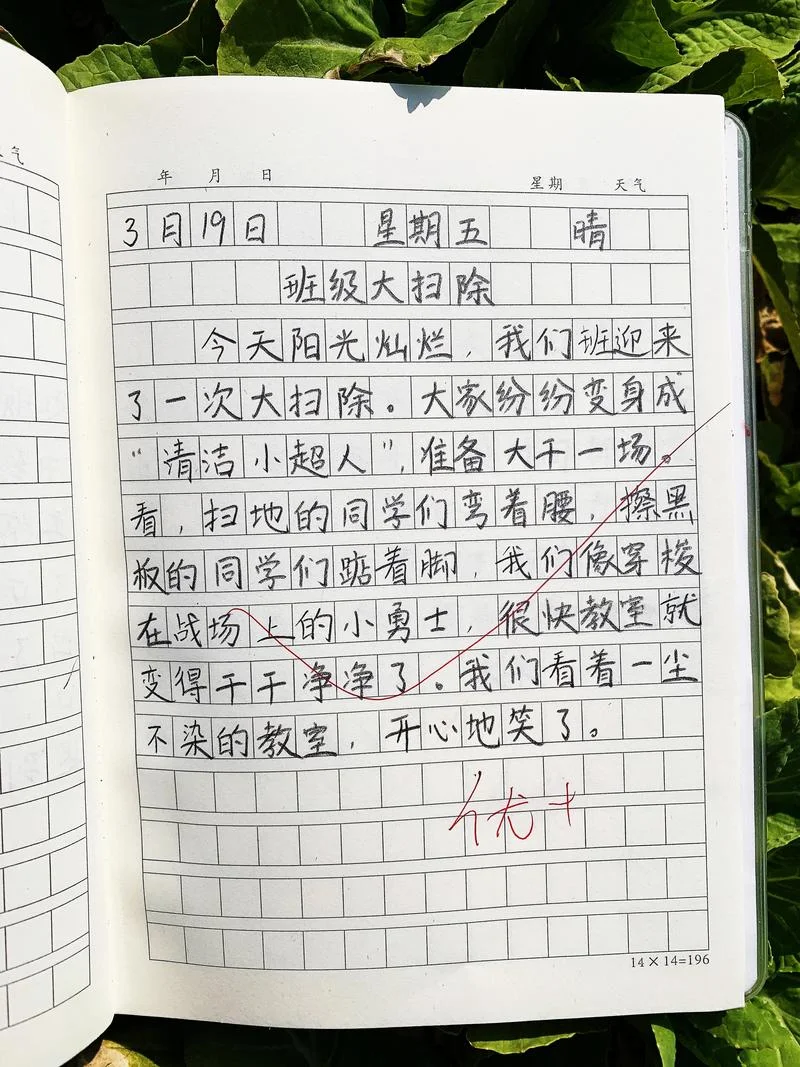 气
年 月 日 星期 天气
3月19日 星期五 晴
班级大扫除
今天阳光灿烂，我们班迎来
了一次大扫除。大家纷纷变身成
“清洁小超人”，准备大干一场。
看，扫地的同学们弯着腰，擦黑
板的同学们踮着脚，我们像穿梭
在战场上的小勇士，很快教室就
变得干干净净了。我们看着一尘
不染的教室，开心地笑了。
优+
14×14=196